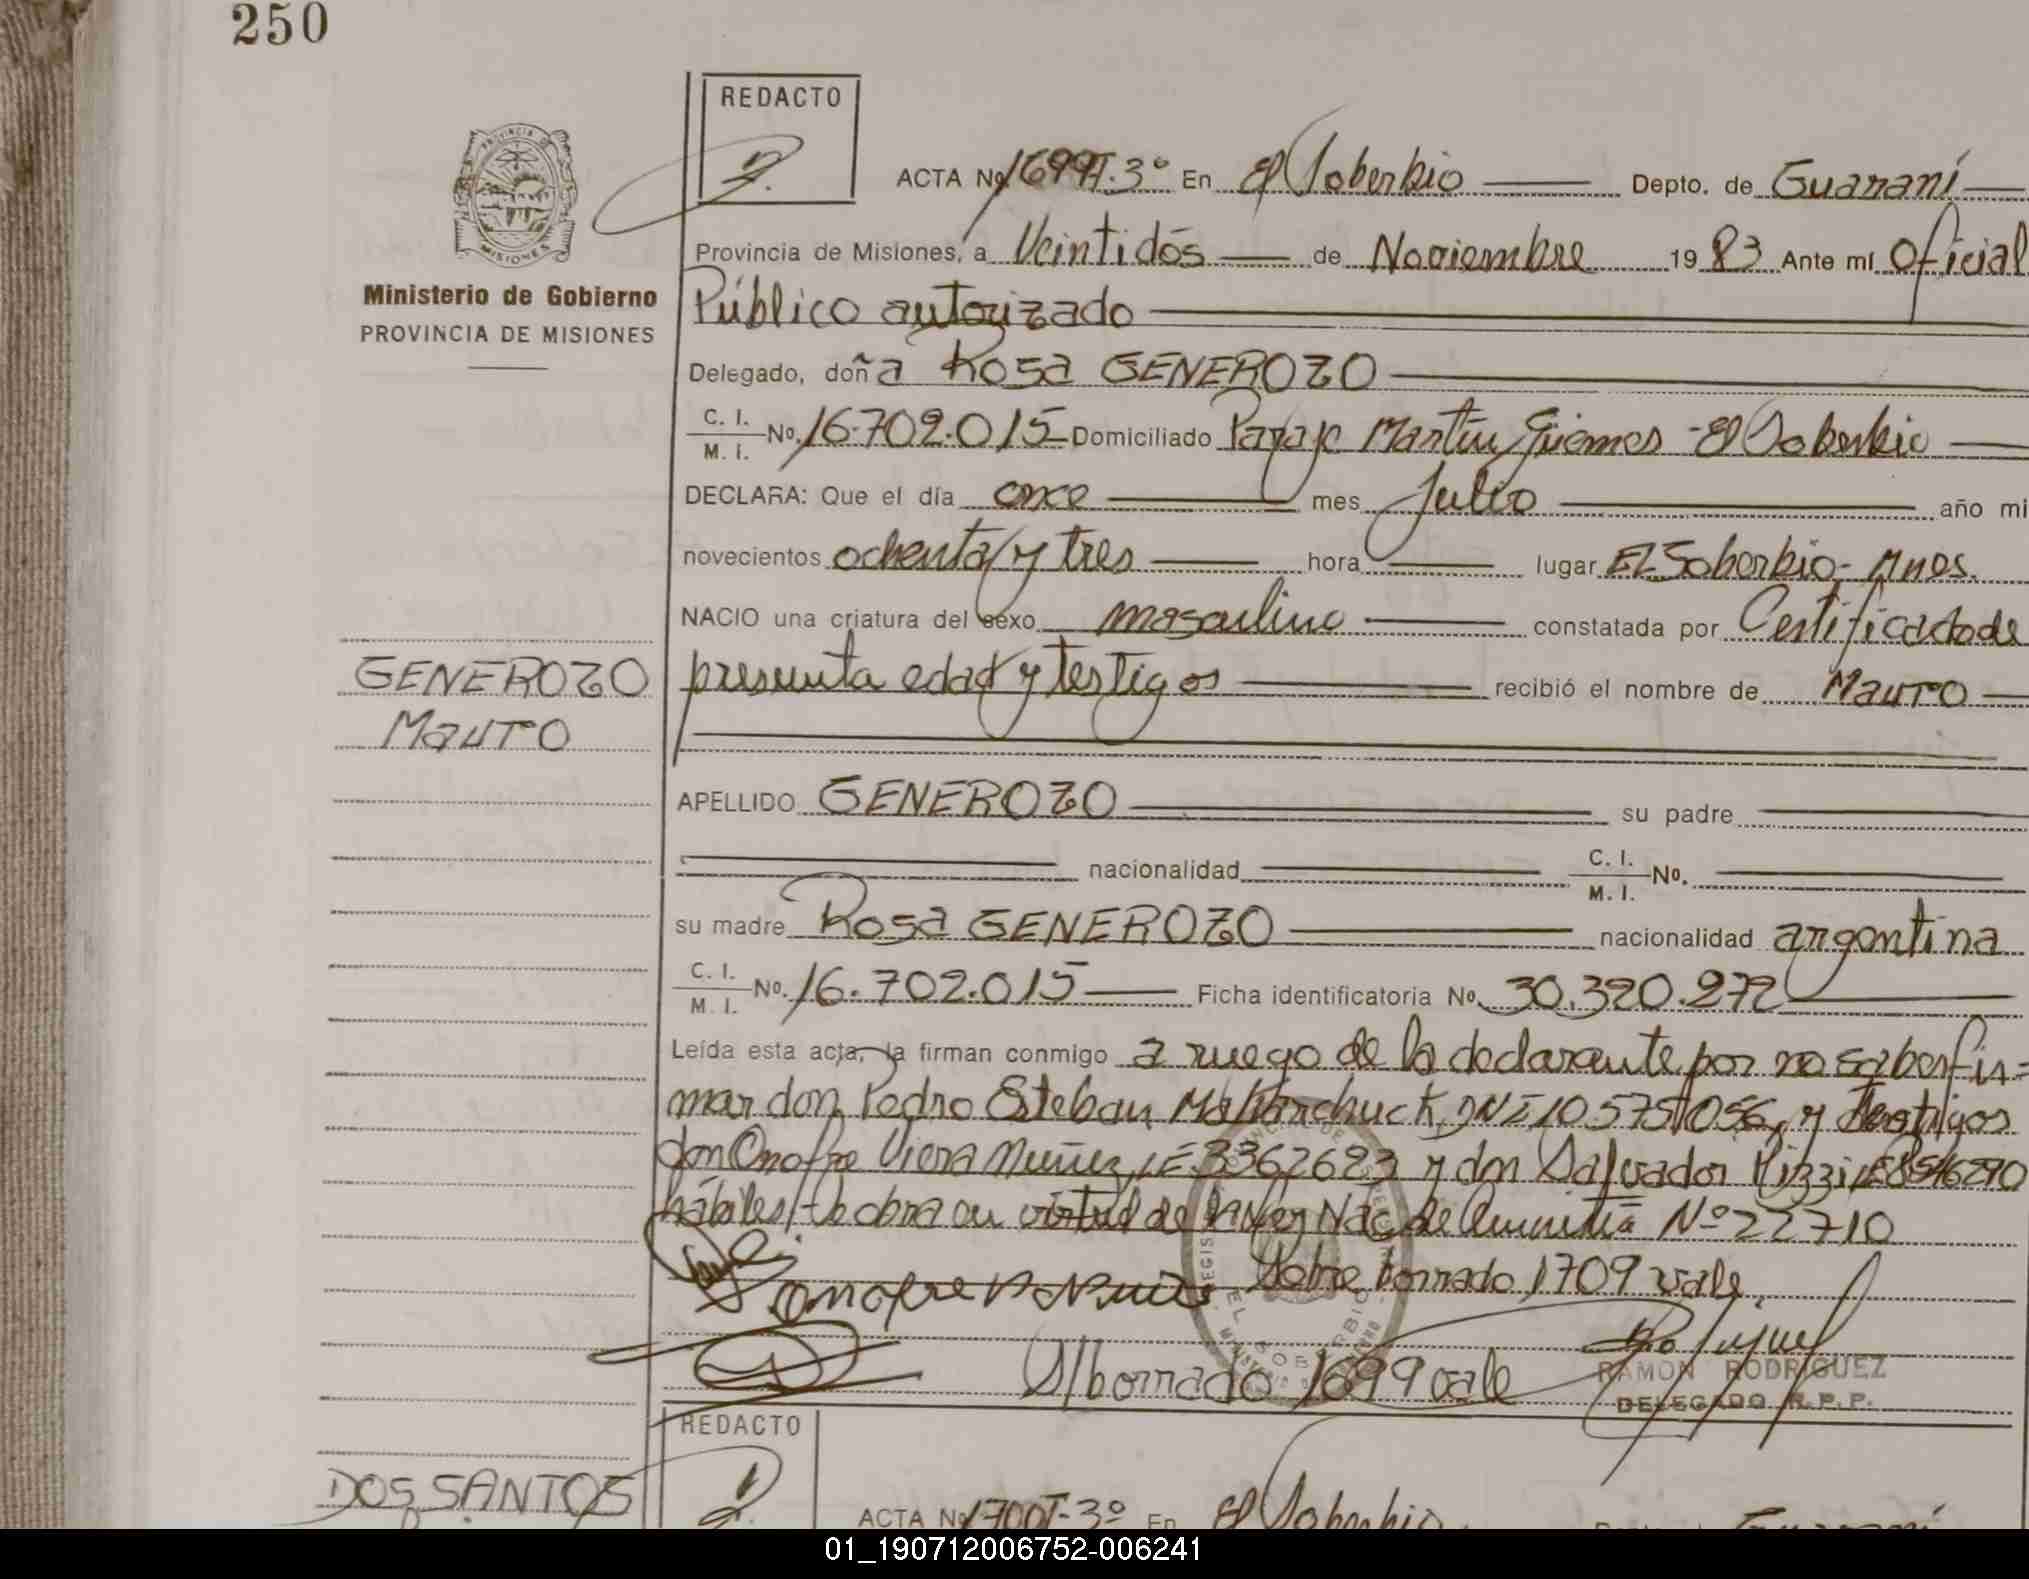 250
REDACTO
ACTA Nº 1699T.3º En El Soberbio Depto. de Guaraní
Provincia de Misiones, a Veintidós de Noviembre 1983 Ante mí Oficial
Público autorizado
Ministerio de Gobierno
PROVINCIA DE MISIONES
Delegado, doña Rosa GENEROZO
C. I.
M. I. Nº. 16.702.015 Domiciliado Paraje Martín Güemes - El Soberbio
DECLARA: Que el día once mes Julio año mi
novecientos ochenta y tres hora lugar El Soberbio - Mnes.
NACIO una criatura del sexo masculino constatada por Certificado de
presunta edad y testigos recibió el nombre de Mauro
GENEROZO
Mauro
APELLIDO GENEROZO su padre
nacionalidad C. I.
M. I. No.
su madre Rosa GENEROZO nacionalidad argentina
C. I.
M. I. Nº. 16.702.015 Ficha identificatoria Nº 30.320.272
Leída esta acta, la firman conmigo a ruego de la declarante por no saber fir=
mar don Pedro Esteban DNI 10.575.056, y testigos
don Onofre Viera Nuñez, LE 3362623 y don Salvador Pizzi LE 8546290
hábiles, se obra en virtud de la Ley Nac. de Amnistía Nº 22710
Sobre borrado 1709 vale.
S/borrado 1699 vale
RAMON RODRIGUEZ
DELEGADO R.P.P.
REDACTO
DOS SANTOS
ACTA Nº 1700T-3º En El Soberbio Guaraní
01_190712006752-006241